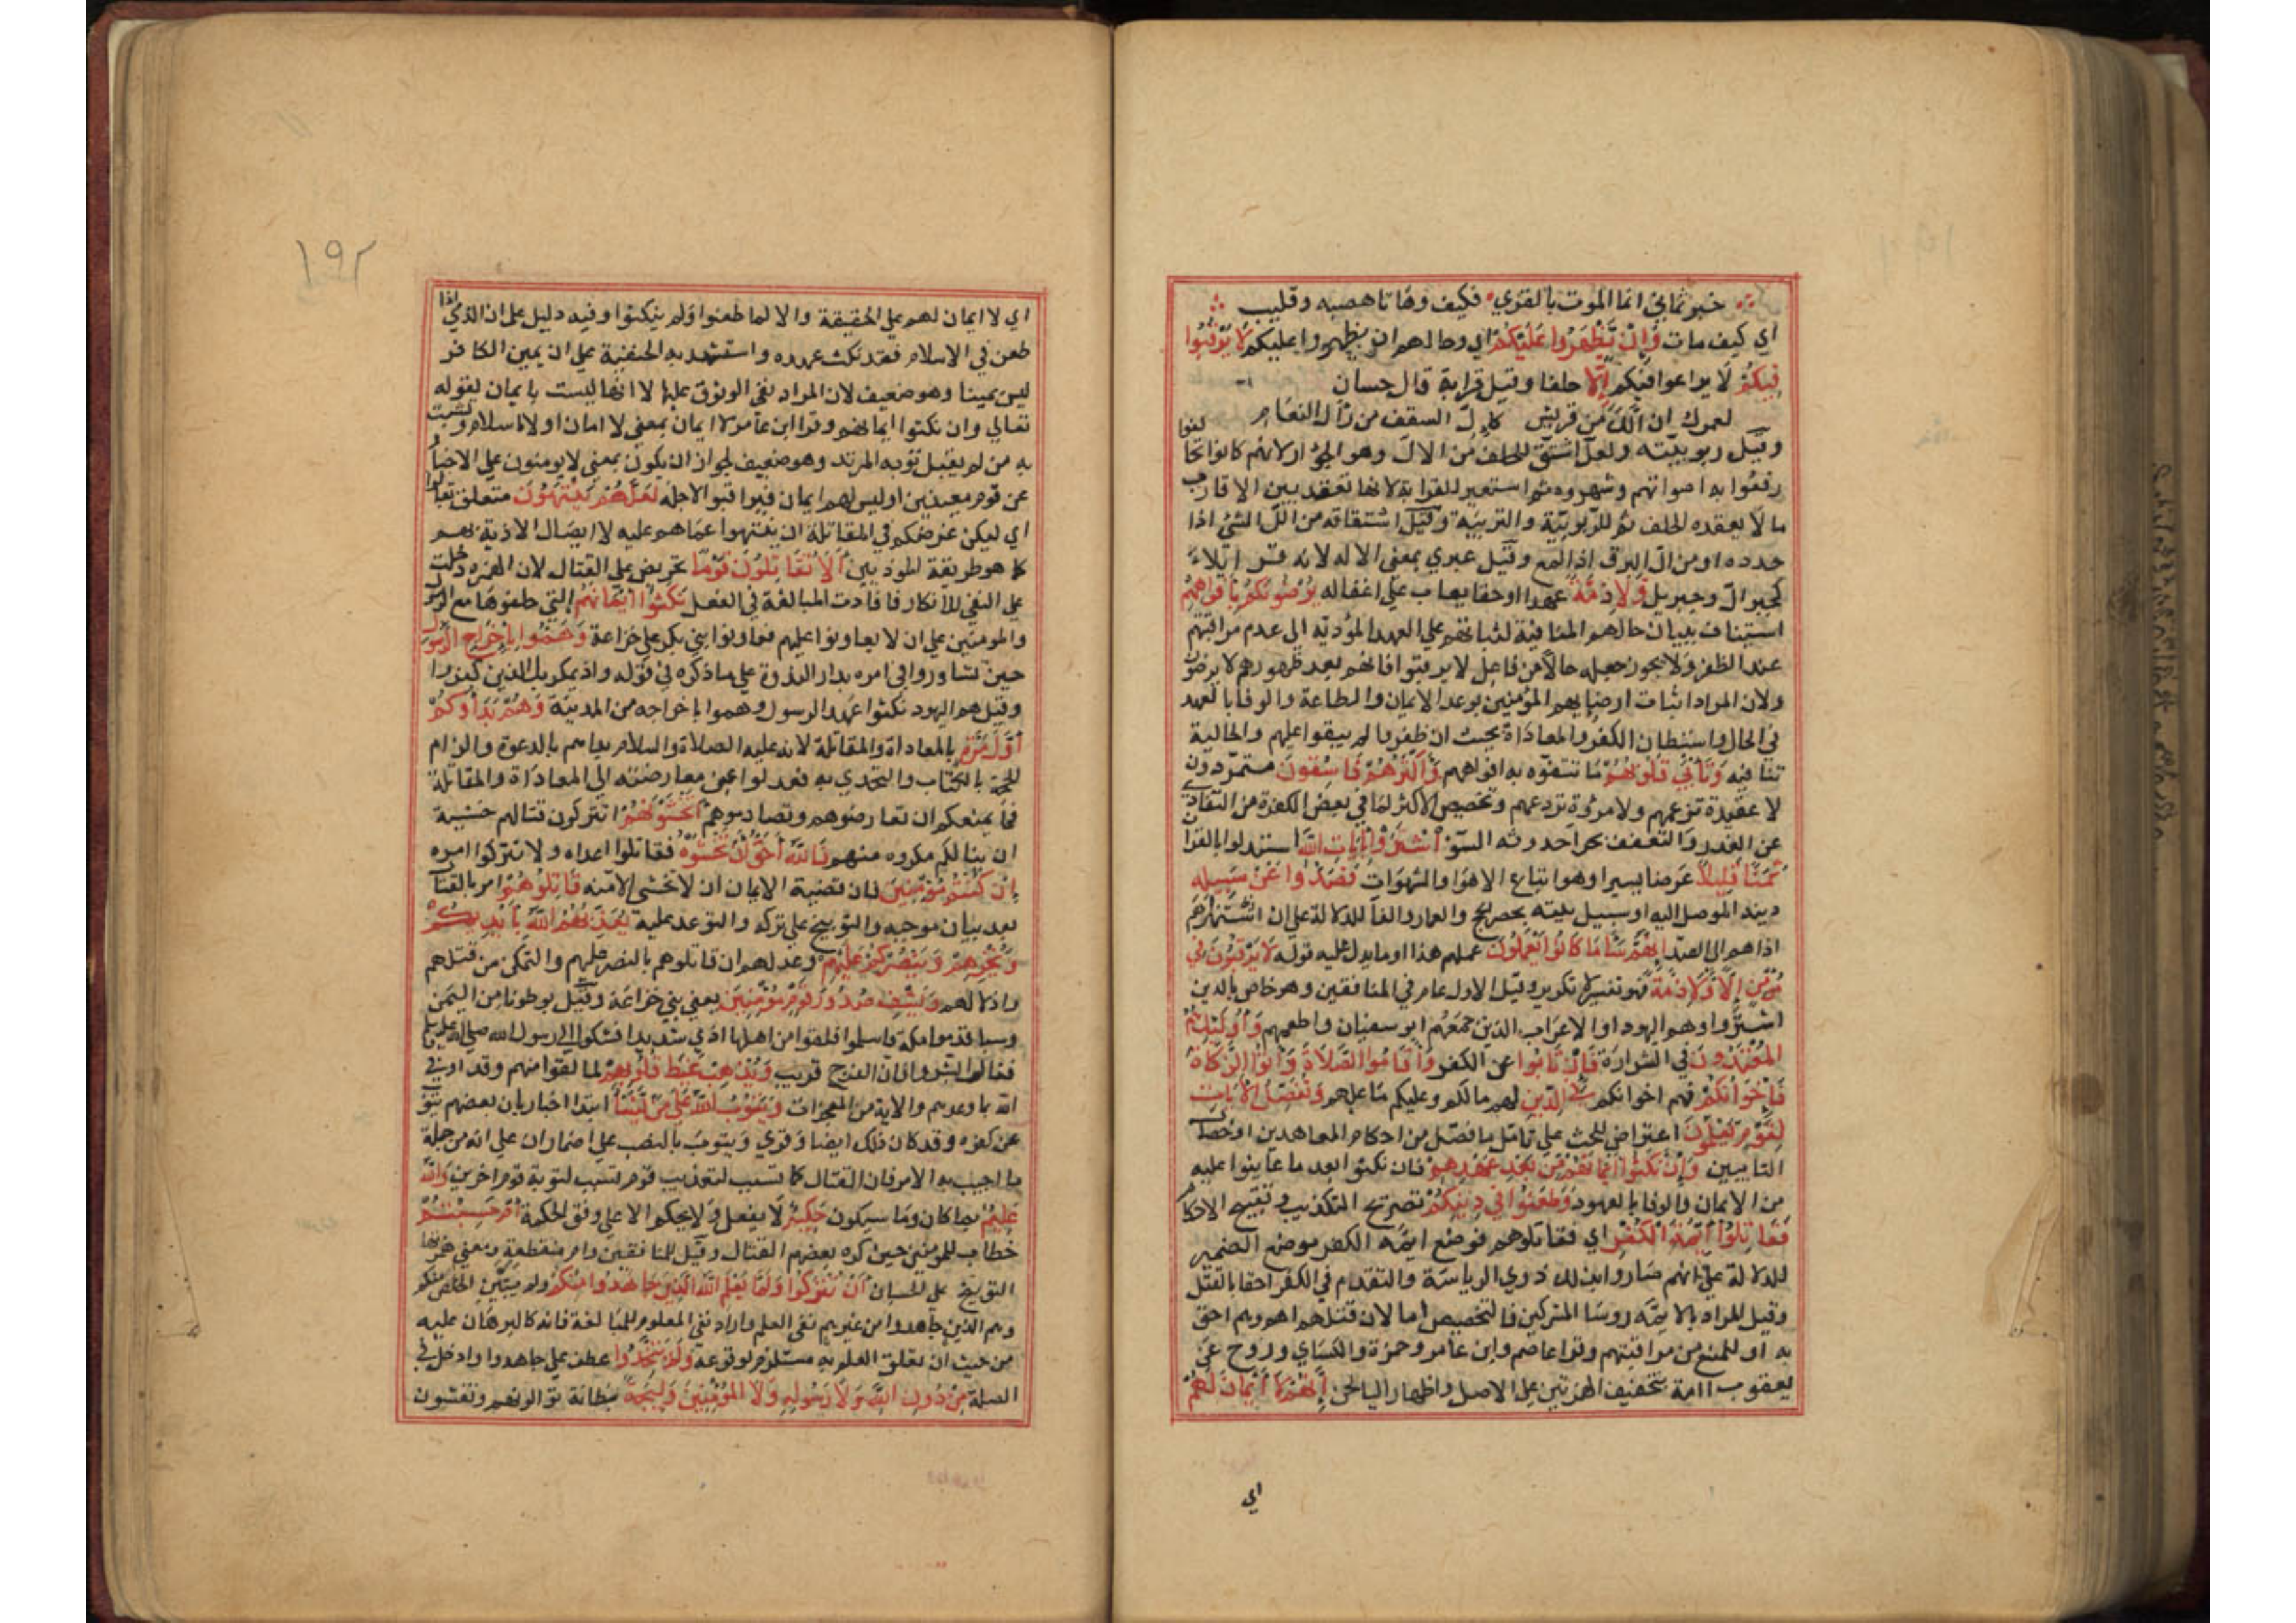 خبرتماني انما الموت بالقري فكيف وهاتا هصبه وقليب
اي كيف مات وَاِنْ يَّظْهَرُوا عَلَيْكُمْ اي وحالهم ان يظهروا عليكم لَا يَرْقُبُوا
فِيكُمْ لا يراعوا فيكم اِلًّا حلفا وقيل قرابة قال حسان
لعمرك ان الّك من قريش كال السقف من رال النعام
وقيل ربوبيته ولعل اشتق للحلف من الال وهو الجؤ ارلانهم كانوا اذا تحالفوا
رفعوا به اصواتهم وشهروه ثم استعير للقرابة لانها تعقد بين الاقارب
ما لا يعقده الحلف ثم للربوبية والتربية وقيل اشتقاقه من الل الشئ اذا
حدده او من ال البرق اذا لمع وقيل عبري بمعني الاله لانه قري ايلا
كجبرال وجبريل وَلَا ذِمَّةً عهدا او حقا يعاب علي اغفاله يُرْضُونَكُمْ بِاَفْوَاهِهِمْ
استيناف ببيان حالهم المنافية لثباتهم علي العهد المؤدية الي عدم مراقبتهم
عند الظفر ولا يجوز جعله حالا من فاعل لا يرقبوا فانهم بعد ظهورهم لا يرضون
ولان المراد اثبات ارضايهم المؤمنين بوعد الايمان والطاعة والوفا بالعهد
في الحال واستبطان الكفر والمعاداة بحيث ان ظفروا لم يبقوا عليهم والحالية
تنافيه وَتَاْبَي قُلُوبُهُمْ ما تتفوه به افواههم وَاَكْثَرُهُمْ فَاسِقُونَ متمردون
لا عقيدة تزعهم ولا مروة تردعهم وتخصيص الاكثر لما في بعض الكفرة من التفادي
عن الغدر والتعفف عما يجر احدوثه السوّ اِشْتَرَوْا بِاٰيَاتِ اللهِ استبدلوا بالقران
ثَمَنًا قَلِيلًا عرضا يسيرا وهو اتباع الاهوا والشهوات فَصَدُّوا عَنْ سَبِيلِهِ
دينه الموصل اليه او سبيل بيته بحصر الحجاج والعمار والفا للدلالة علي ان اشتراهم
اذاهم الي الصد اِنَّهُمْ سَآءَ مَا كَانُوا يَعْمَلُونَ عملهم هذا او ما يدل عليه قوله لَا يَرْقُبُونَ فِي
مُؤْمِنٍ اِلًّا وَلَا ذِمَّةً فهو تفسير لا تكرير وقيل الاول عام في المنافقين وهو خاص بالذين
اشتروا وهم اليهود او الاعراب الذين جمعهم ابو سفيان واطعمهم وَاُولٰئِكَ هُمُ
الْمُعْتَدُونَ في الشرارة فَاِنْ تَابُوا عن الكفر وَاَقَامُوا الصَّلَاةَ وَاٰتَوُا الزَّكَاةَ
فَاِخْوَانُكُمْ فهم اخوانكم فِي الدِّينِ لهم مالكم وعليكم ما عليهم وَنُفَصِّلُ الْاٰيَاتِ
لِقَوْمٍ يَعْلَمُونَ اعتراض للحث علي تامل ما فصل من احكام المعاهدين او خصال
التايبين وَاِنْ نَكَثُوا اَيْمَانَهُمْ مِنْ بَعْدِ عَهْدِهِمْ فان نكثوا بعد ما عاينوا عليه
من الايمان والوفا بالعهود وَطَعَنُوا فِي دِينِكُمْ بصريح التكذيب وتقبيح الاحكام
فَقَاتِلُوا اَئِمَّةَ الْكُفْرِ اي فقاتلوهم فوضع ايمة الكفر موضع الضمير
للدلالة علي انهم صاروا بذلك ذوي الرياسة والتقدم في الكفر احقا بالقتل
وقيل المراد بالايمة روسا المشركين فالتخصيص اما لان قتلهم اهم وهم احق
به او للمنع من مراقبتهم وقرا عاصم وابن عامر وحمزة والكساي وروح عن
يعقوب اامة بتحقيف الهمزتين علي الاصل واظهار اليا لحن اِنَّهُمْ لَا اَيْمَانَ لَهُمْ
اي
١٩٢
اي لا ايمان لهم علي الحقيقة والا لما طعنوا ولم ينكثوا وفيه دليل علي ان الذمي اذا
طعن في الاسلام فقد نكث عهده واستشهد به الحنفية علي ان يمين الكافر
ليس يمينا وهو ضعيف لان المراد نفي الوثوق عليها لا انها ليست بايمان لقوله
تعالي وان نكثوا ايمانهم وقرا ابن عامر لا ايمان بمعني لا امان او لا اسلام وتشبث
به من لم يقبل توبة المرتد وهو ضعيف لجواز ان يكون بمعني لا يومنون علي الاخبار
عن قوم معينين او ليس لهم ايمان فيراقبوا لاجله لَعَلَّهُمْ يَنْتَهُونَ متعلق بقاتلوا
اي ليكن غرضكم في المقاتلة ان ينتهوا عما هم عليه لا ايصال الاذية بهم
كما هو طريقة الموذيين اَلَا تُقَاتِلُونَ قَوْمًا تحريض علي القتال لان الهمزة دخلت
علي النفي للانكار فافادت المبالغة في الفعل نَكَثُوا اَيْمَانَهُمْ التي حلفوها مع الرسول
والمومنين علي ان لا يعاونوا عليهم فعاونوا بني بكر علي خزاعة وَهَمُّوا بِاِخْرَاجِ الرَّسُولِ
حين تشاوروا في امره بدار الندوة علي ما ذكره في قوله واذ يمكر بك الذين كفروا
وقيل هم اليهود نكثوا عهد الرسول وهموا باخراجه من المدينة وَهُمْ بَدَاُوكُمْ
اَوَّلَ مَرَّةٍ بالمعاداة والمقاتلة لانه عليه الصلاة والسلام بداهم بالدعوة والزام
الحجة بالكتاب والتحدي به فعدلوا عن معارضته الي المعاداة والمقاتلة
فما يمنعكم ان تعارضوهم وتصادموهم اَتَخْشَوْنَهُمْ اتتركون قتالهم خشية
ان ينالكم مكروه منهم فَاللهُ اَحَقُّ اَنْ تَخْشَوْهُ فقاتلوا اعداه ولا تتركوا امره
اِنْ كُنْتُمْ مُؤْمِنِينَ فان قضية الايمان ان لا تخشي الا منه قَاتِلُوهُمْ امر بالقتال
بعد بيان موجبه والتوبيخ علي تركه والتوعد عليه يُعَذِّبْهُمُ اللهُ بِاَيْدِيكُمْ
وَيُخْزِهِمْ وَيَنْصُرْكُمْ عَلَيْهِمْ وعد لهم ان قاتلوهم بالنصر عليهم والتمكن من قتلهم
واذلالهم وَيَشْفِ صُدُورَ قَوْمٍ مُؤْمِنِينَ يعني بني خزاعة وقيل بوطونا من اليمن
وسبا قدموا مكة فاسلموا فلقوا من اهلها اذي شديدا فشكوا الي رسول الله صلي الله عليه وسلم
فقال ابشروا فان الفرج قريب وَيُذْهِبْ غَيْظَ قُلُوبِهِمْ لما لقوا منهم وقد اوفي
الله بما وعدهم والاية من المعجزات وَيَتُوبُ اللهُ عَلَي مَنْ يَشَآءُ ابتدا اخبار بان بعضهم يتوب
عن كفره وقد كان ذلك ايضا وقري ويتوبَ بالنصب علي اضمار ان علي انه من جملة
ما اجيب به الامر فان القتال كما تسبب لتعذيب قوم تسبب لتوبة قوم اخرين وَاللهُ
عَلِيمٌ بما كان وما سيكون حَكِيمٌ لا يفعل ولا يحكم الا علي وفق الحكمة اَمْ حَسِبْتُمْ
خطاب للمومنين حين كره بعضهم القتال وقيل للمنافقين وام منقطعة ومعني همزتها
التوبيخ علي الحسبان اَنْ تُتْرَكُوا وَلَمَّا يَعْلَمِ اللهُ الَّذِينَ جَاهَدُوا مِنْكُمْ ولم يتبين الخلص منكم
وهم الذين جاهدوا من غيرهم نفي العلم واراد نفي المعلوم للمبالغة فانه كالبرهان عليه
من حيث ان تعلق العلم به مستلزم لوقوعه وَلَمْ يَتَّخِذُوا عطف علي جاهدوا داخل في
الصلة مِنْ دُونِ اللهِ وَلَا رَسُولِهِ وَلَا الْمُؤْمِنِينَ وَلِيجَةً بطانة توالونهم وتفشون